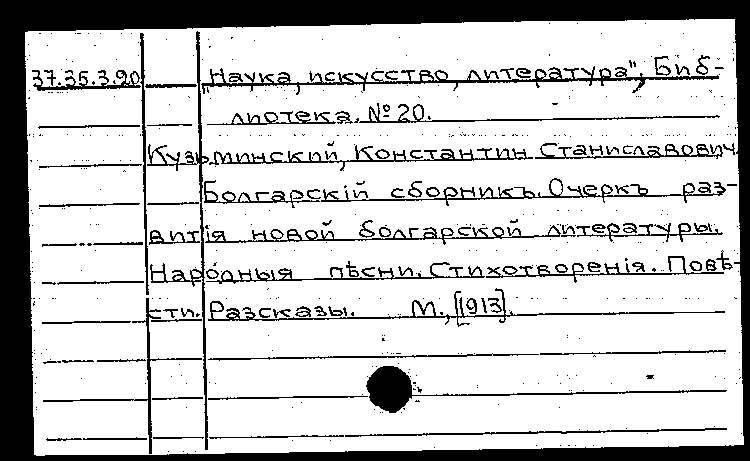 37.35.3.20 „Наука, искусство, литература“; Биб-
лиотека. № 20.
Кузьминский, Константин Станиславович
Болгарскій сборникъ. Очеркъ раз-
витія новой болгарской литературы.
Народныя пѣсни. Стихотворенія. Повѣ-
сти. Разсказы. М., [1913].